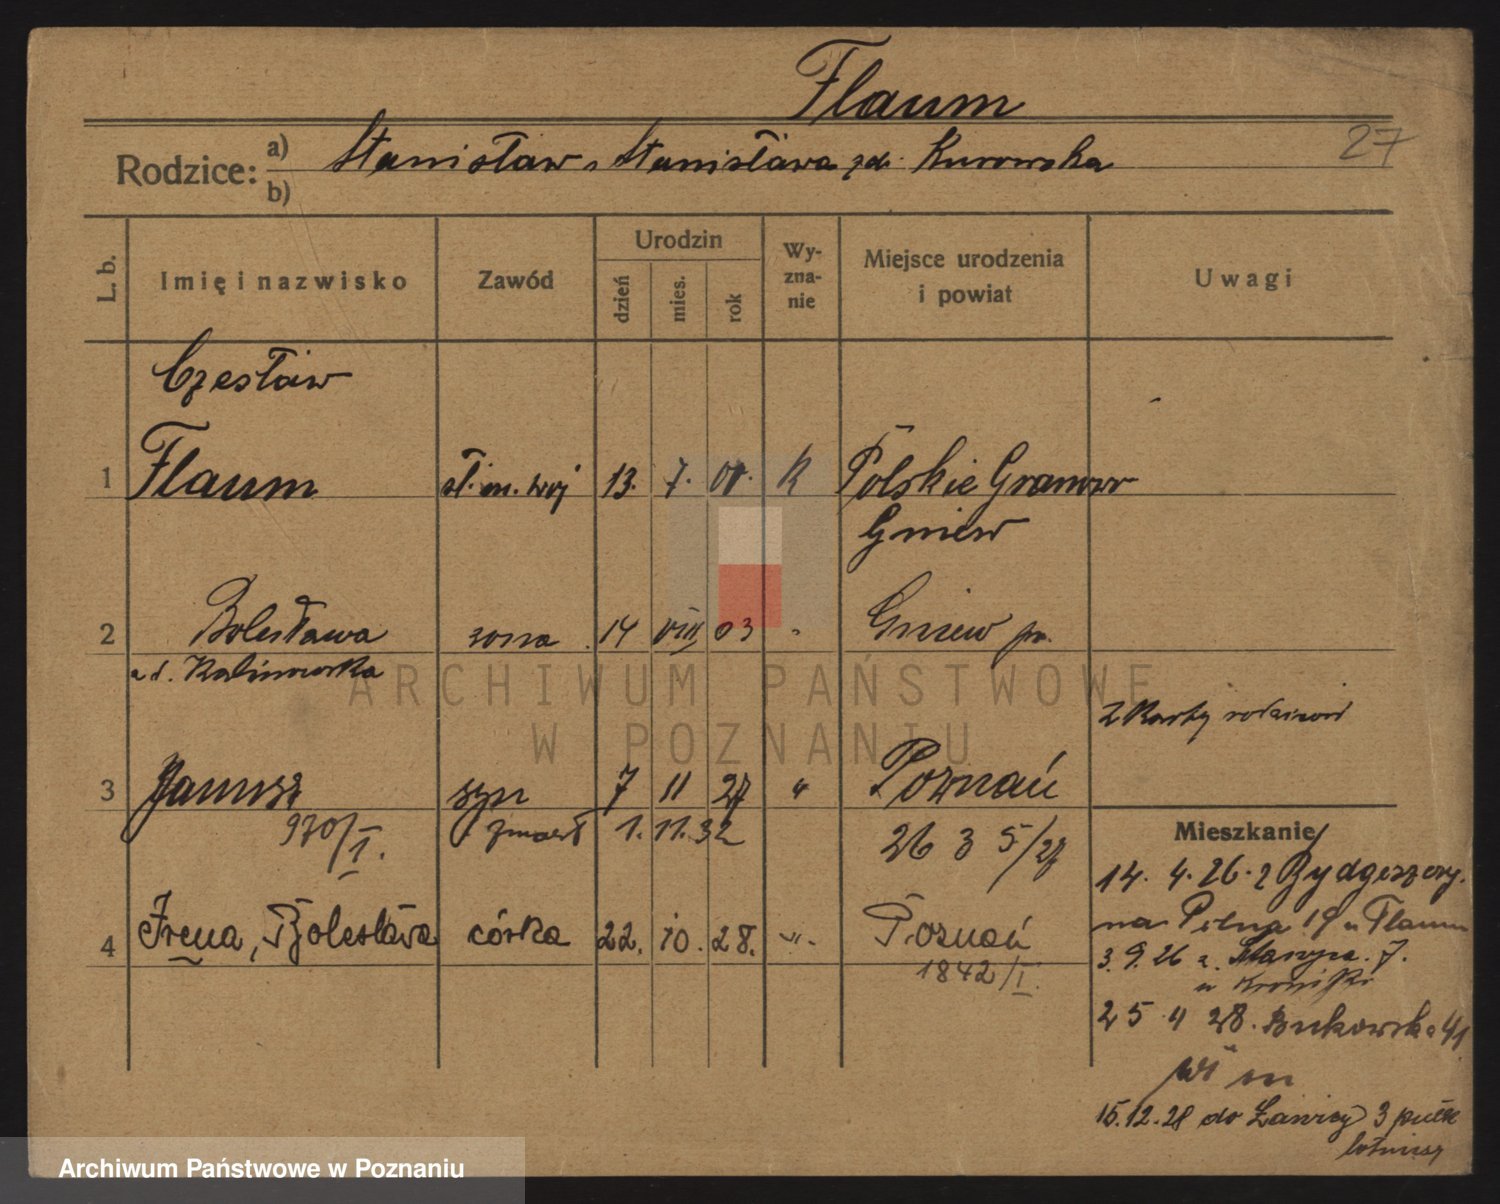 Flaum
27
Rodzice: a) Stanisław, Stanisława zd. Kurowska
b)
L. b. Imię i nazwisko Zawód Urodzin dzień mies. rok Wy-zna-nie Miejsce urodzenia i powiat Uwagi
Czesław
1 Flaum st. m. woj 13. 7. 01. K Polskie Gronowo
Gniew
2 Bolesława żona 14 VIII 03 " Gniew pn.
zd. Kalinowska
2 Karty rodzinne
3 Janusz syn 7 11 27 " Poznań
970/I. zmarł 1. 11. 32 26 3 5/27
Mieszkanie
14. 4. 26. z Bydgoszczy.
na Polna 19 u Flaum
4 Irena, Bolesława córka 22. 10. 28. " Poznań
3. 9. 26 7.
1842/I.
25 4 28. Bukowska 41
15.12.28 do Ławicy 3 pułk
lotniczy
ARCHIWUM PAŃSTWOWE
W POZNANIU
Archiwum Państwowe w Poznaniu